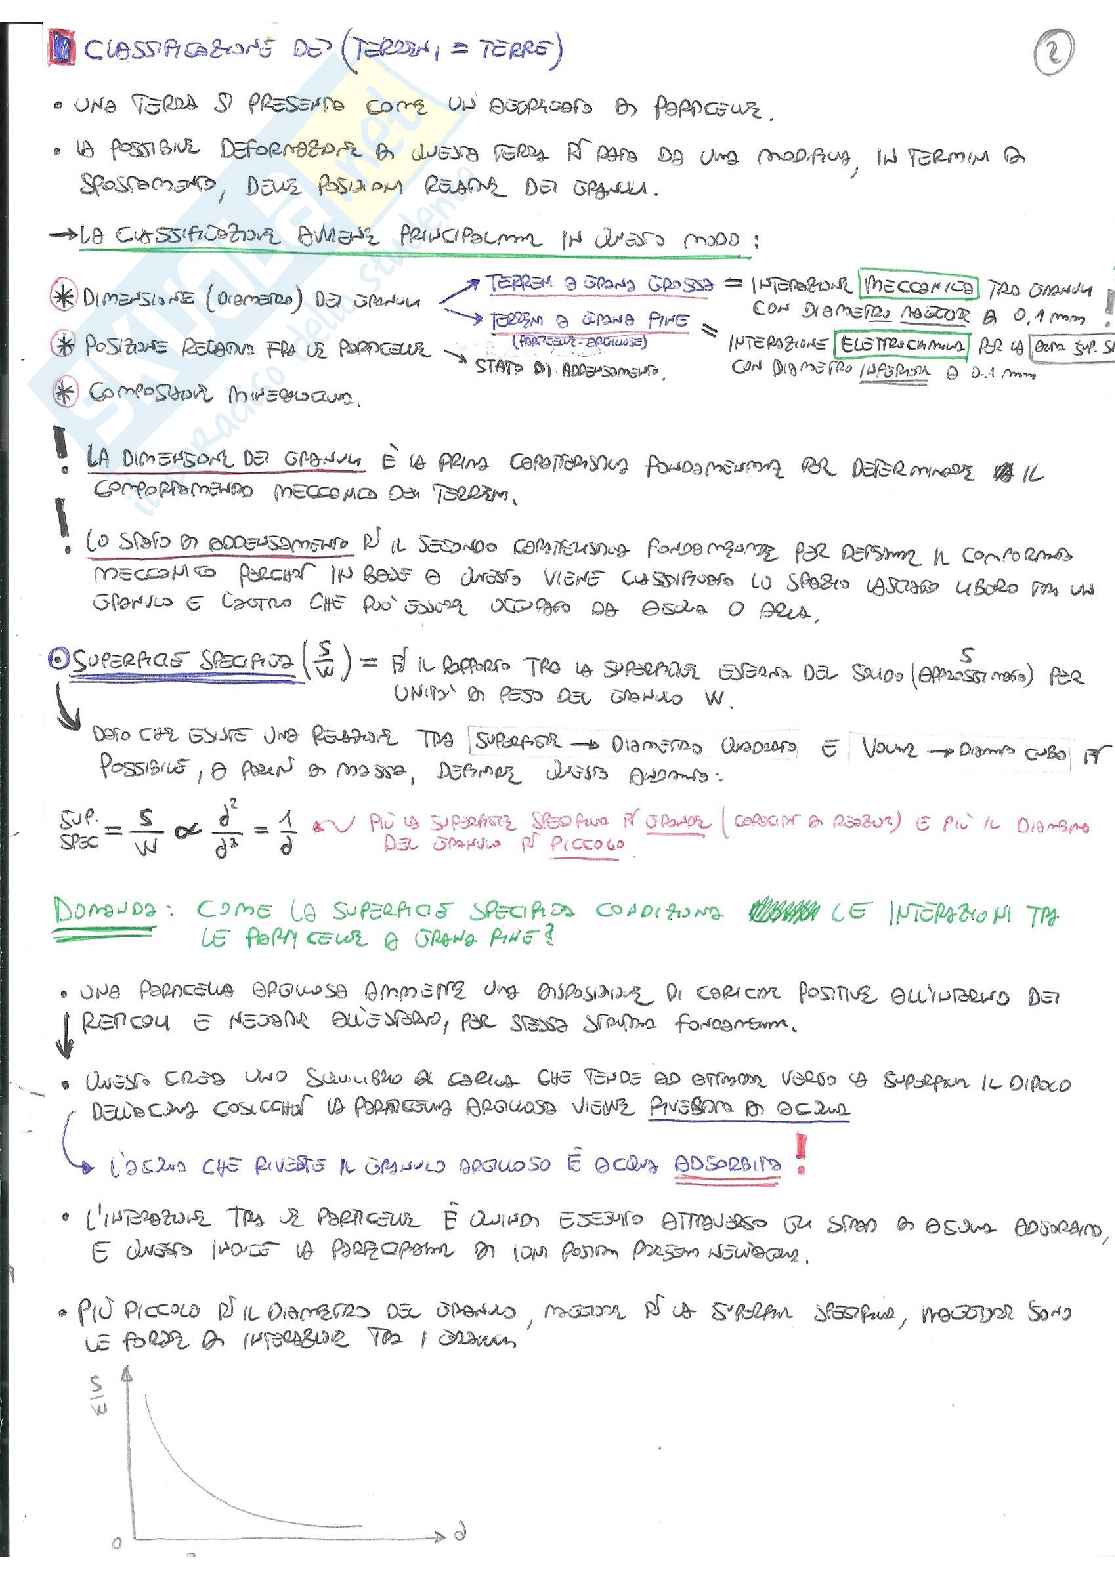 CLASSIFICAZIONE DEI (TERRENI = TERRE)
2
• UNA TERRA SI PRESENTA COME UN AGGREGATO DI PARTICELLE.
• LA POSSIBILE DEFORMAZIONE DI QUESTA TERRA È DATA DA UNA MODIFICA, IN TERMINI DI
SPOSTAMENTO, DELLE POSIZIONI RELATIVE DEI GRANULI.
→ LA CLASSIFICAZIONE AVVIENE PRINCIPALMENTE IN QUESTO MODO:
* DIMENSIONE (DIAMETRO) DEI GRANULI
TERRENI A GRANA GROSSA = INTERAZIONE MECCANICA TRA GRANULI
CON DIAMETRO MAGGIORE DI 0,1 mm !
TERRENI A GRANA FINE = INTERAZIONE ELETTROCHIMICA PER LA SUP.
(PARTICELLE ARGILLOSE)
CON DIAMETRO INFERIORE A 0.1 mm
* POSIZIONE RELATIVA FRA LE PARTICELLE → STATO DI ADDENSAMENTO.
* COMPOSIZIONE MINERALOGICA.
! LA DIMENSIONE DEI GRANULI È LA PRIMA CARATTERISTICA FONDAMENTALE PER DETERMINARE IL
COMPORTAMENTO MECCANICO DEI TERRENI.
! LO STATO DI ADDENSAMENTO È IL SECONDO CARATTERISTICA FONDAMENTALE PER DEFINIRE IL
MECCANICO PERCHÉ IN BASE A QUESTO VIENE CLASSIFICATO LO SPAZIO LASCIATO LIBERO TRA UN
GRANULO E L'ALTRO CHE PUÒ ESSERE OCCUPATO DA ACQUA O ARIA.
SUPERFICIE SPECIFICA (S/W) = È IL RAPPORTO TRA LA SUPERFICIE ESTERNA DEL SOLIDO S (APPROSSIMATO) PER
UNITÀ DI PESO DEL GRANULO W.
DATO CHE ESISTE UNA RELAZIONE TRA SUPERFICIE → DIAMETRO QUADRATO E VOLUME → DIAMETRO CUBO È
POSSIBILE, A PARITÀ DI MASSA, DEFINIRE QUESTA
SUP. SPEC = S/W ∝ d²/d³ = 1/d PIÙ LA SUPERFICIE SPECIFICA È GRANDE (CAPACITÀ DI REAGIRE) E PIÙ IL DIAMETRO
DEL GRANULO È PICCOLO
DOMANDA: COME LA SUPERFICIE SPECIFICA CONDIZIONA LE INTERAZIONI TRA
LE PARTICELLE A GRANA FINE?
• UNA PARTICELLA ARGILLOSA AMMETTE UNA DISPOSIZIONE DI CARICHE POSITIVE ALL'INTERNO DEI
RETICOLI E NEGATIVE ALL'ESTERNO, PER STESSA STRUTTURA FONDAMENTALE.
• QUESTO CREA UNO SQUILIBRIO DI CARICA CHE TENDE AD ATTIRARE VERSO LA SUPERFICIE IL DIPOLO
DELL'ACQUA COSICCHÉ LA PARTICELLA ARGILLOSA VIENE RIVESTITA DI ACQUA
L'ACQUA CHE RIVESTE IL GRANULO ARGILLOSO È ACQUA ADSORBITA !
• L'INTERAZIONE TRA LE PARTICELLE È QUINDI ESEGUITO ATTRAVERSO GLI STRATI DI ACQUA ADSORBITA,
E QUESTO INDICE LA PARTECIPAZIONE DI IONI POSITIVI PRESENTI NELL'ACQUA.
• PIÙ PICCOLO È IL DIAMETRO DEL GRANULO, MAGGIORE È LA SUPERFICIE SPECIFICA, MAGGIORI SONO
LE FORZE DI INTERAZIONE TRA I GRANULI
S/W
0
d